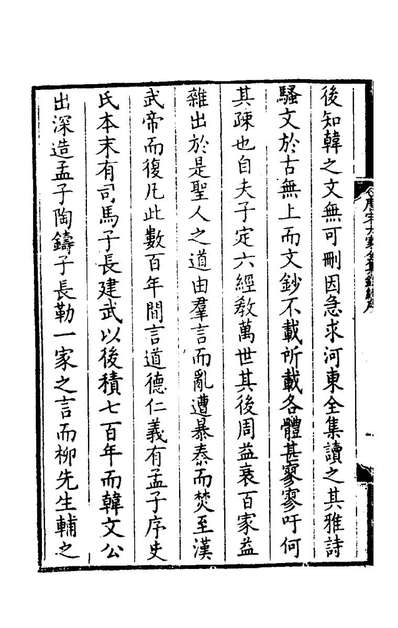 後知韓之文無可刪因急求河東全集讀之其雅詩
騷文於古無上而文鈔不載所載各體甚寥寥吁何
其疎也自夫子定六經教萬世其後周益衰百家益
雜出於是聖人之道由羣言而亂遭暴秦而焚至漢
武帝而復凡此數百年間言道德仁義有孟子序史
氏本末有司馬子長建武以後積七百年而韓文公
出深造孟子陶鑄子長勒一家之言而柳先生輔之